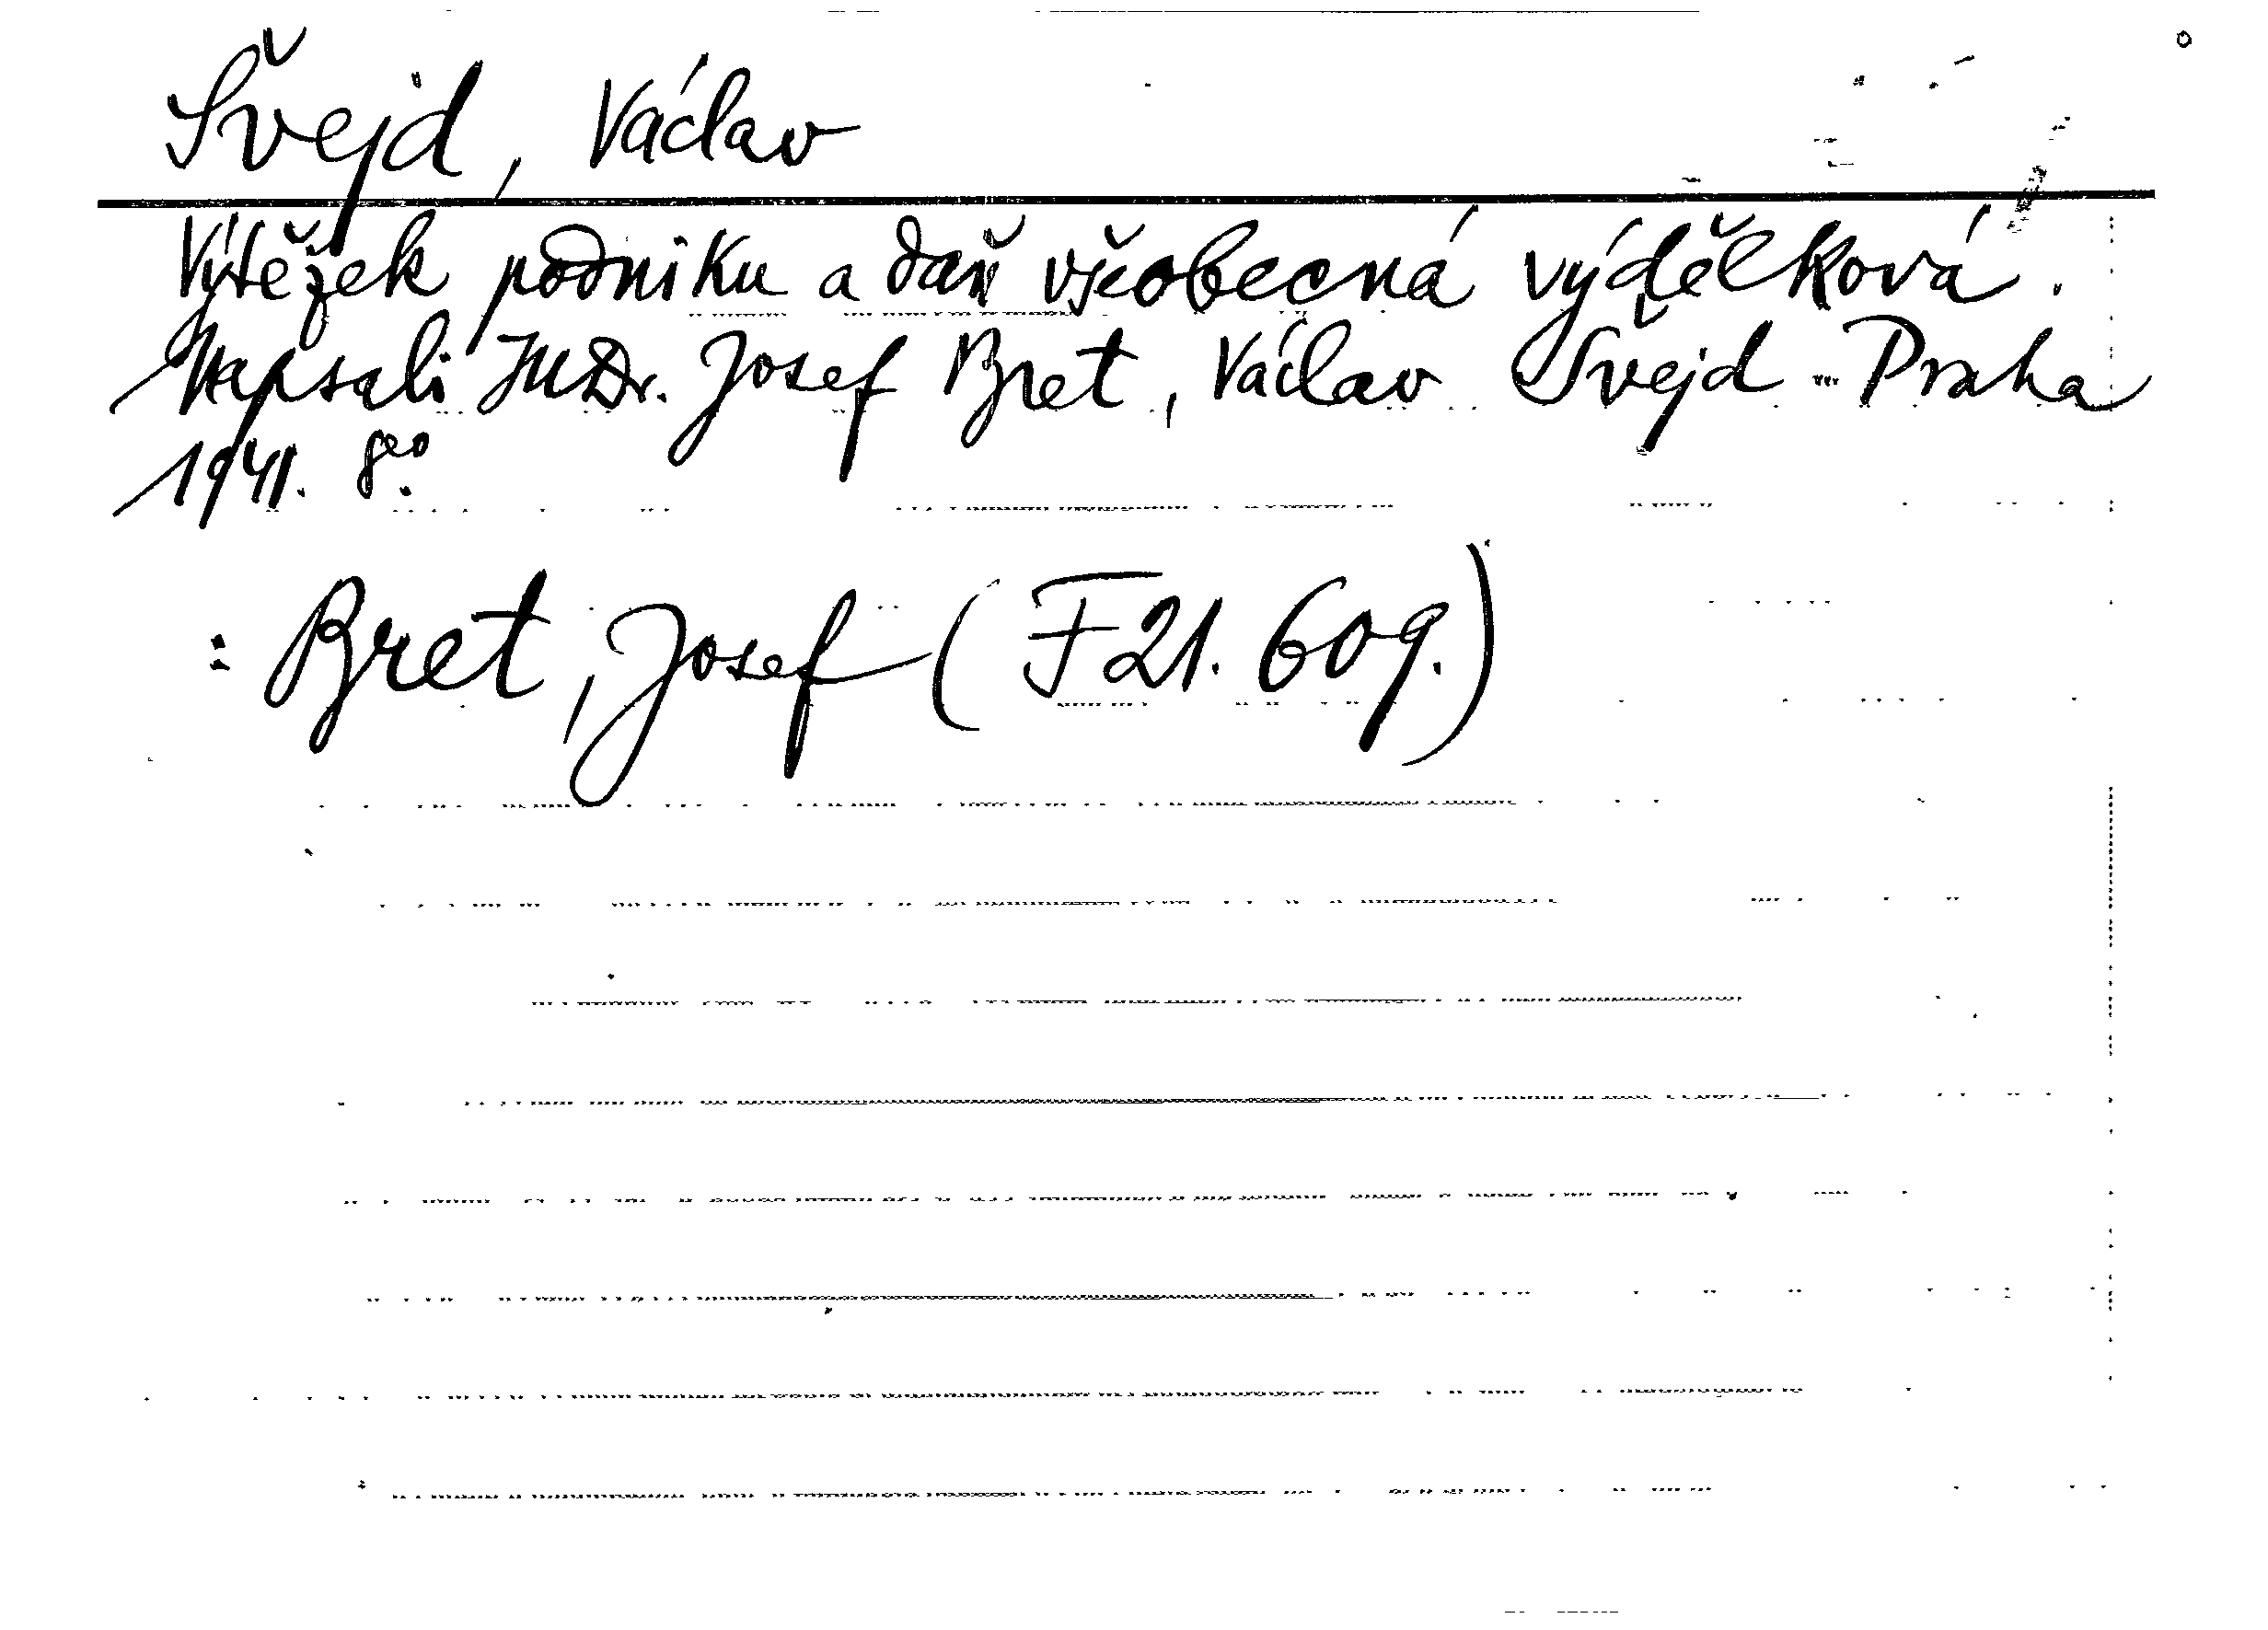 Švejd, Václav
Výtěžek podniku a daň všeobecná výdělková.
Napsali JUDr. Josef Bret, Václav Švejd ... Praha
1941. 8°.
: Bret, Josef (F 21. 609.)